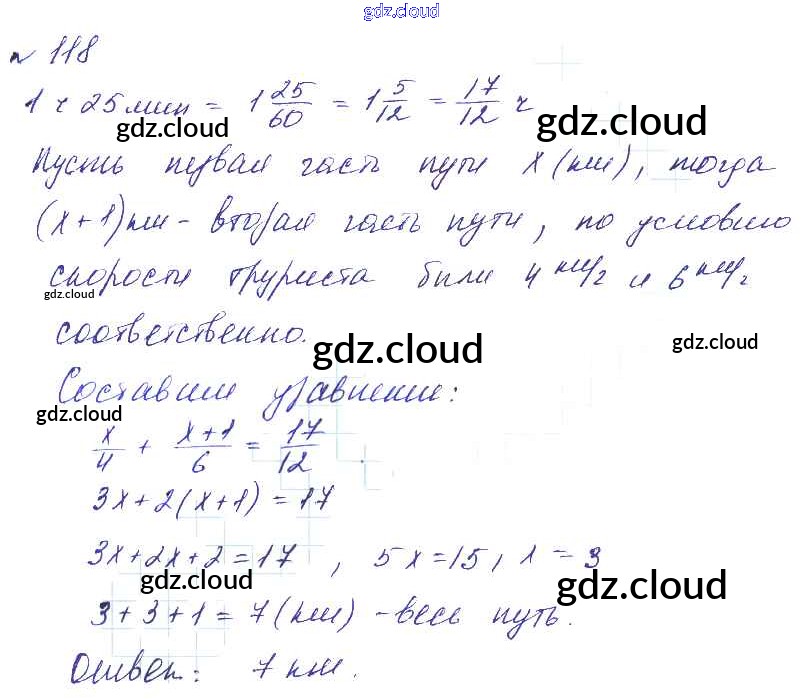 gdz.cloud
№ 118
1 ч 25 мин = 1 25/60 = 1 5/12 = 17/12 ч
gdz.cloud gdz.cloud
Пусть первая часть пути x (км), тогда
(x+1) км - вторая часть пути, по условию
скорость туриста были 4 км/ч и 6 км/ч
gdz.cloud
соответственно.
gdz.cloud gdz.cloud
Составим уравнение:
gdz.cloud
x/4 + x+1/6 = 17/12
3x+2(x+1) = 17
3x+2x+2=17, 5x=15, x=3
gdz.cloud gdz.cloud
3+3+1=7 (км) - весь путь.
Ответ: 7 км.